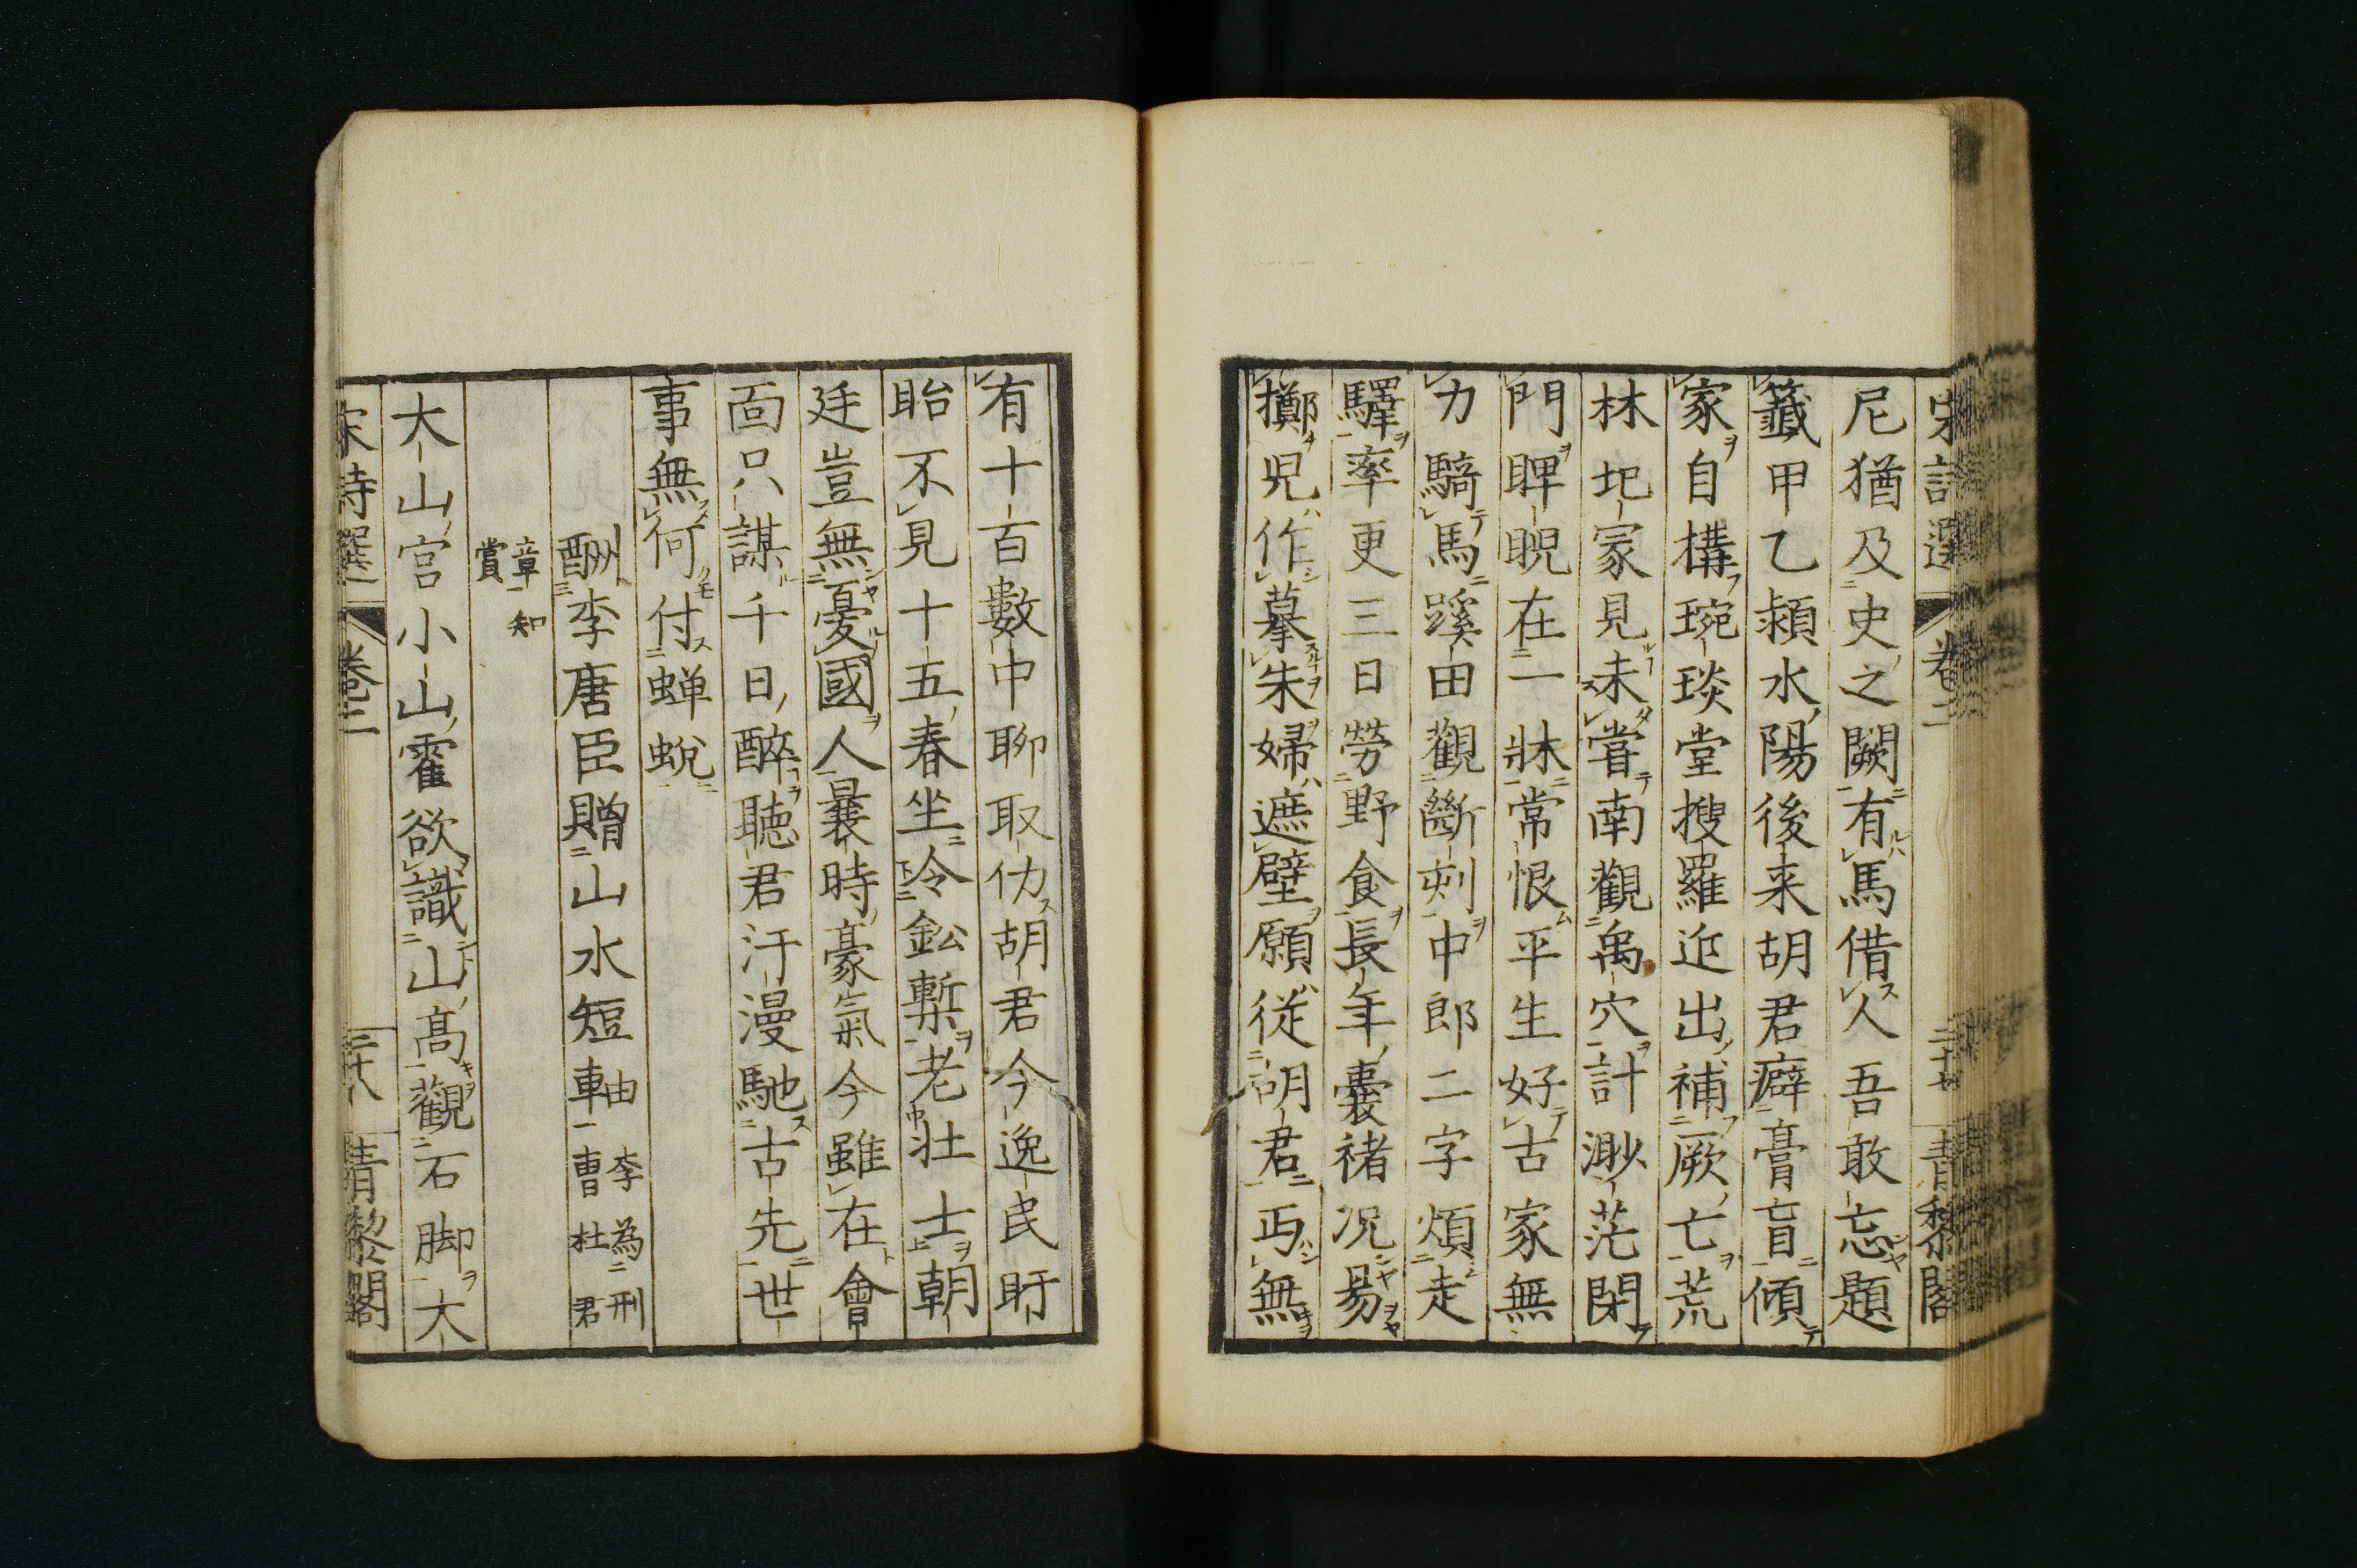 宋詩選 卷二 二十七 青黎閣
尼猶及史之闕有馬借人吾敢忘題
籤甲乙潁水陽後来胡君癖膏盲傾
家自構琬琰堂捜羅近出補厥亡荒
林圯冢見未嘗南觀禹穴計渺茫閉
門睥睨在一牀常恨平生好古家無
力騎馬蹊田觀斷刻中郎二字煩走
驛率更三日勞野食長年嚢褚况易
擲児作摹朱婦遮壁願従胡君丏無
有十百數中聊取仂胡君今逸民盱
眙不見十五春坐冷鈆槧老壮士朝
廷豈無憂國人曩時豪氣今雖在會
面只謀千日醉聴君汗漫馳古先世
事無何付蝉蛻
酬李唐臣贈山水短軸 李為刑曹杜君
章知賞
大山宮小山霍欲識山髙觀石脚大
宋詩選 卷二 二十八 青黎閣